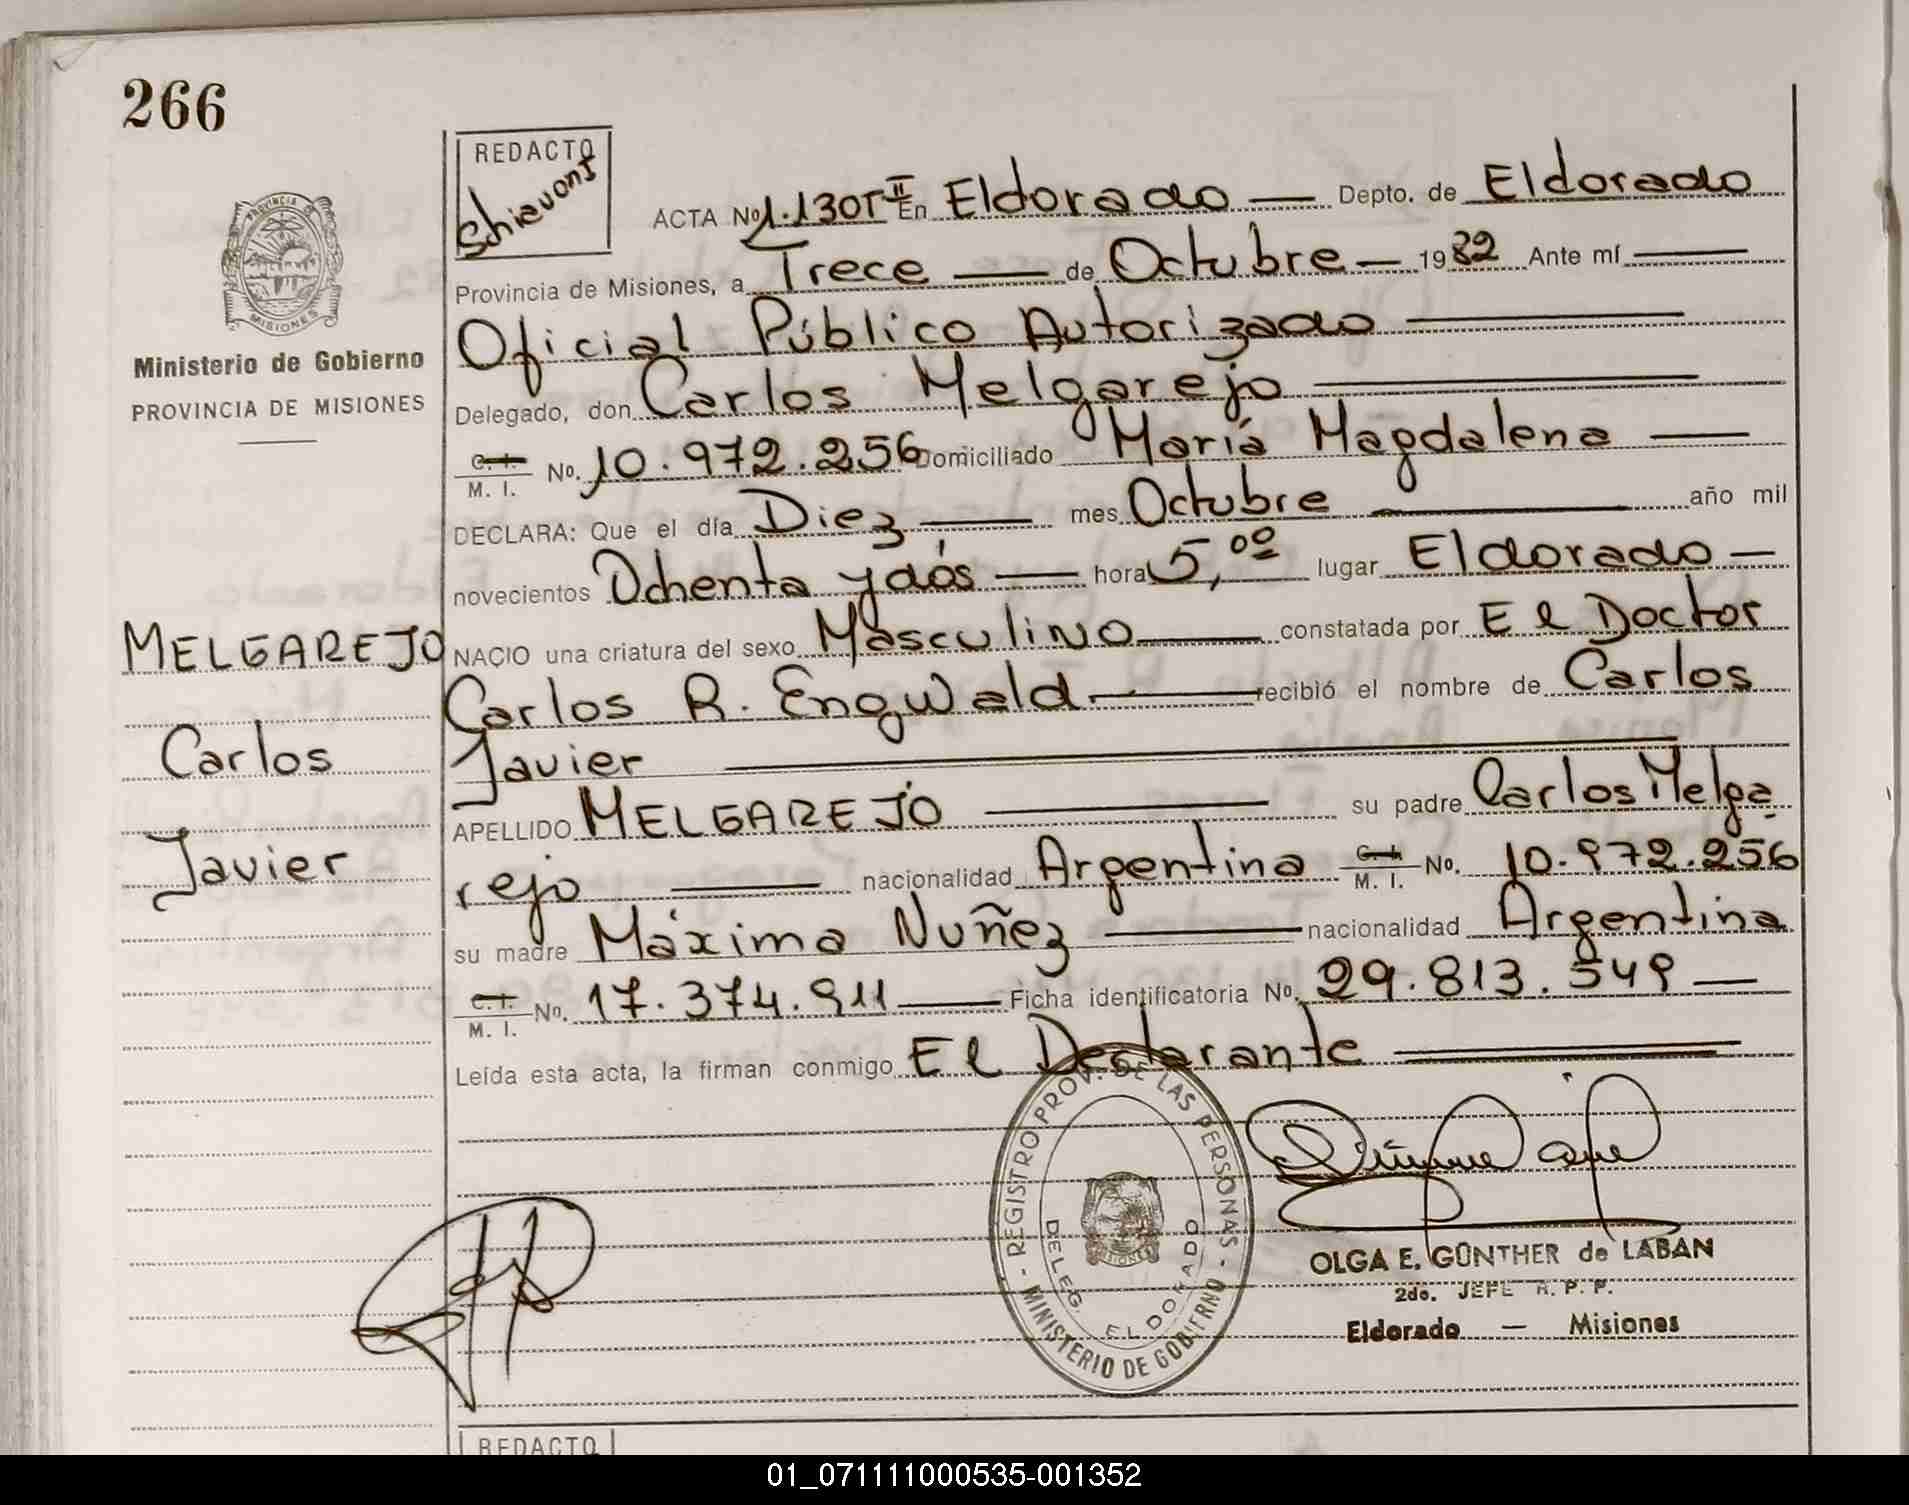 266
REDACTO
Schiavoni
ACTA No 1.130 T II En Eldorado — Depto. de Eldorado
Provincia de Misiones, a Trece — de Octubre — 1982 Ante mí —
Oficial Público Autorizado —
Delegado, don Carlos Melgarejo —
C. I. M. I. No. 10.972.256 Domiciliado María Magdalena —
DECLARA: Que el día Diez — mes Octubre — año mil
novecientos Ochenta y dós — hora 5,00 lugar Eldorado —
NACIO una criatura del sexo Masculino — constatada por El Doctor
Carlos R. Engwald — recibió el nombre de Carlos
Javier —
APELLIDO MELGAREJO — su padre Carlos Melga
rejo — nacionalidad Argentina C. I. M. I. No. 10.972.256
su madre Máxima Nuñez — nacionalidad Argentina
C. I. M. I. No. 17.374.911 — Ficha identificatoria No. 29.813.549 —
Leída esta acta, la firman conmigo El Declarante —
PROVINCIA DE MISIONES
Ministerio de Gobierno
PROVINCIA DE MISIONES
MELGAREJO
Carlos
Javier
- REGISTRO PROV. DE LAS PERSONAS -
MINISTERIO DE GOBIERNO
DELEG. ELDORADO
MISIONES
OLGA E. GÜNTHER de LABAN
2do. JEFE R. P. P.
Eldorado — Misiones
REDACTO
01_071111000535-001352